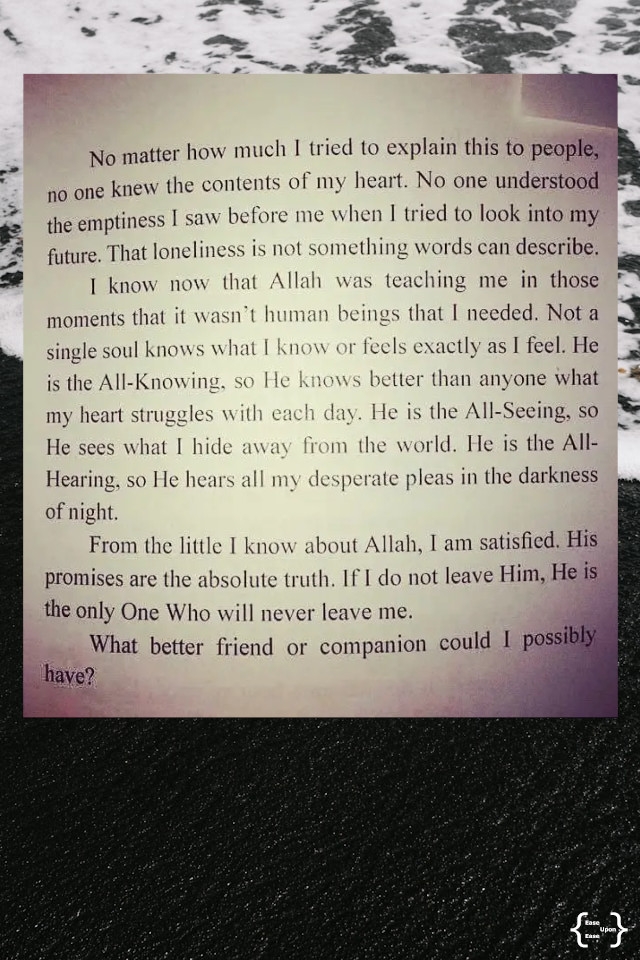 No matter how much I tried to explain this to people,
no one knew the contents of my heart. No one understood
the emptiness I saw before me when I tried to look into my
future. That loneliness is not something words can describe.
I know now that Allah was teaching me in those
moments that it wasn't human beings that I needed. Not a
single soul knows what I know or feels exactly as I feel. He
is the All-Knowing, so He knows better than anyone what
my heart struggles with each day. He is the All-Seeing, so
He sees what I hide away from the world. He is the All-
Hearing, so He hears all my desperate pleas in the darkness
of night.
From the little I know about Allah, I am satisfied. His
promises are the absolute truth. If I do not leave Him, He is
the only One Who will never leave me.
What better friend or companion could I possibly
have?
{Ease
Upon
Ease}